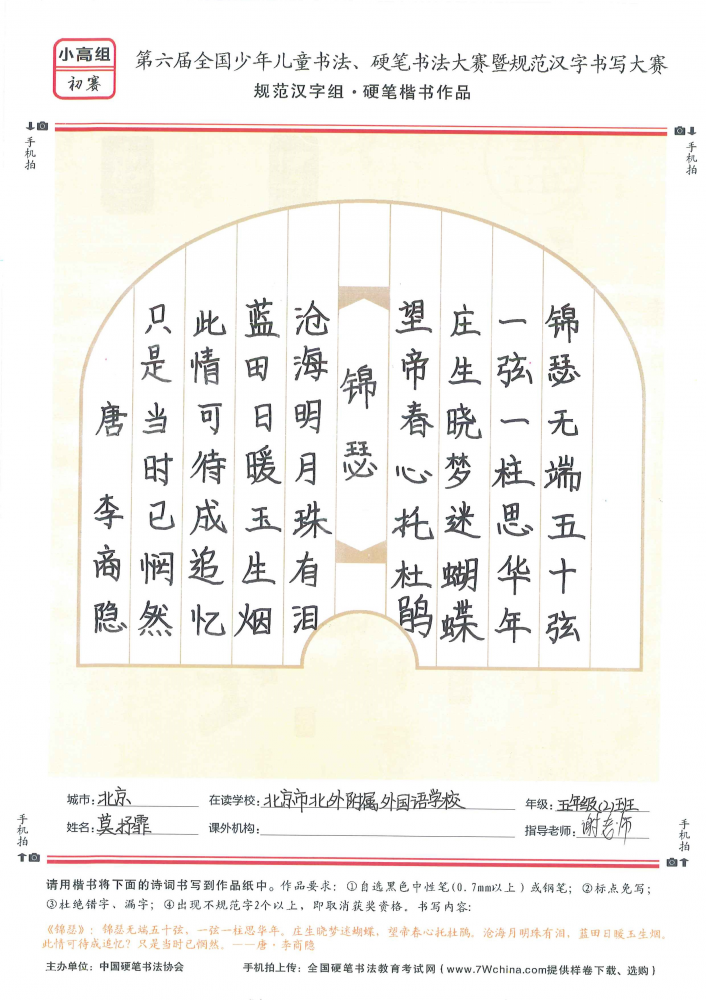 小高组
初赛
第六届全国少年儿童书法、硬笔书法大赛暨规范汉字书写大赛
规范汉字组·硬笔楷书作品
手机拍
手机拍
锦瑟无端五十弦
一弦一柱思华年
庄生晓梦迷蝴蝶
望帝春心托杜鹃
锦瑟
沧海明月珠有泪
蓝田日暖玉生烟
此情可待成追忆
只是当时已惘然
唐 李商隐
城市:北京 在读学校:北京市北外附属外国语学校 年级:五年级(2)班
姓名:莫抒霏 课外机构: 指导老师:谢老师
手机拍
手机拍
请用楷书将下面的诗词书写到作品纸中。作品要求：①自选黑色中性笔(0.7mm以上)或钢笔；②标点免写；
③杜绝错字、漏字；④出现不规范字2个以上，即取消获奖资格。书写内容：
《锦瑟》：锦瑟无端五十弦，一弦一柱思华年。庄生晓梦迷蝴蝶，望帝春心托杜鹃。沧海月明珠有泪，蓝田日暖玉生烟。
此情可待成追忆？只是当时已惘然。——唐·李商隐
主办单位：中国硬笔书法协会 手机拍上传：全国硬笔书法教育考试网（www.7Wchina.com提供样卷下载、选购）